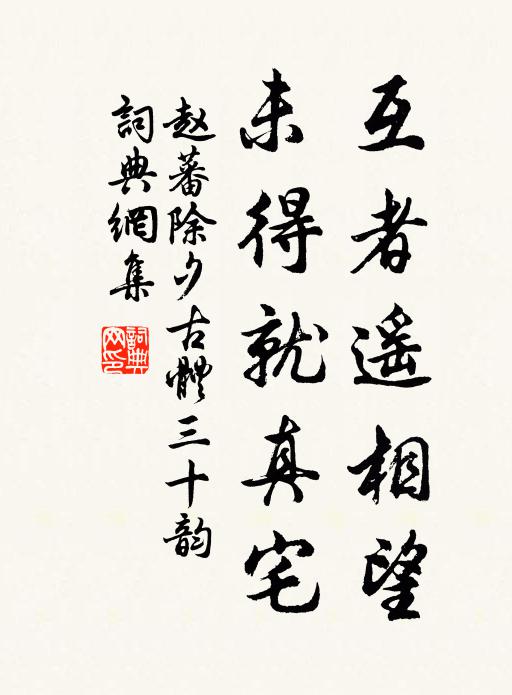 互者遥相望
未得就真宅
赵蕃除夕古體三十韵
詞典網集
詞典网印